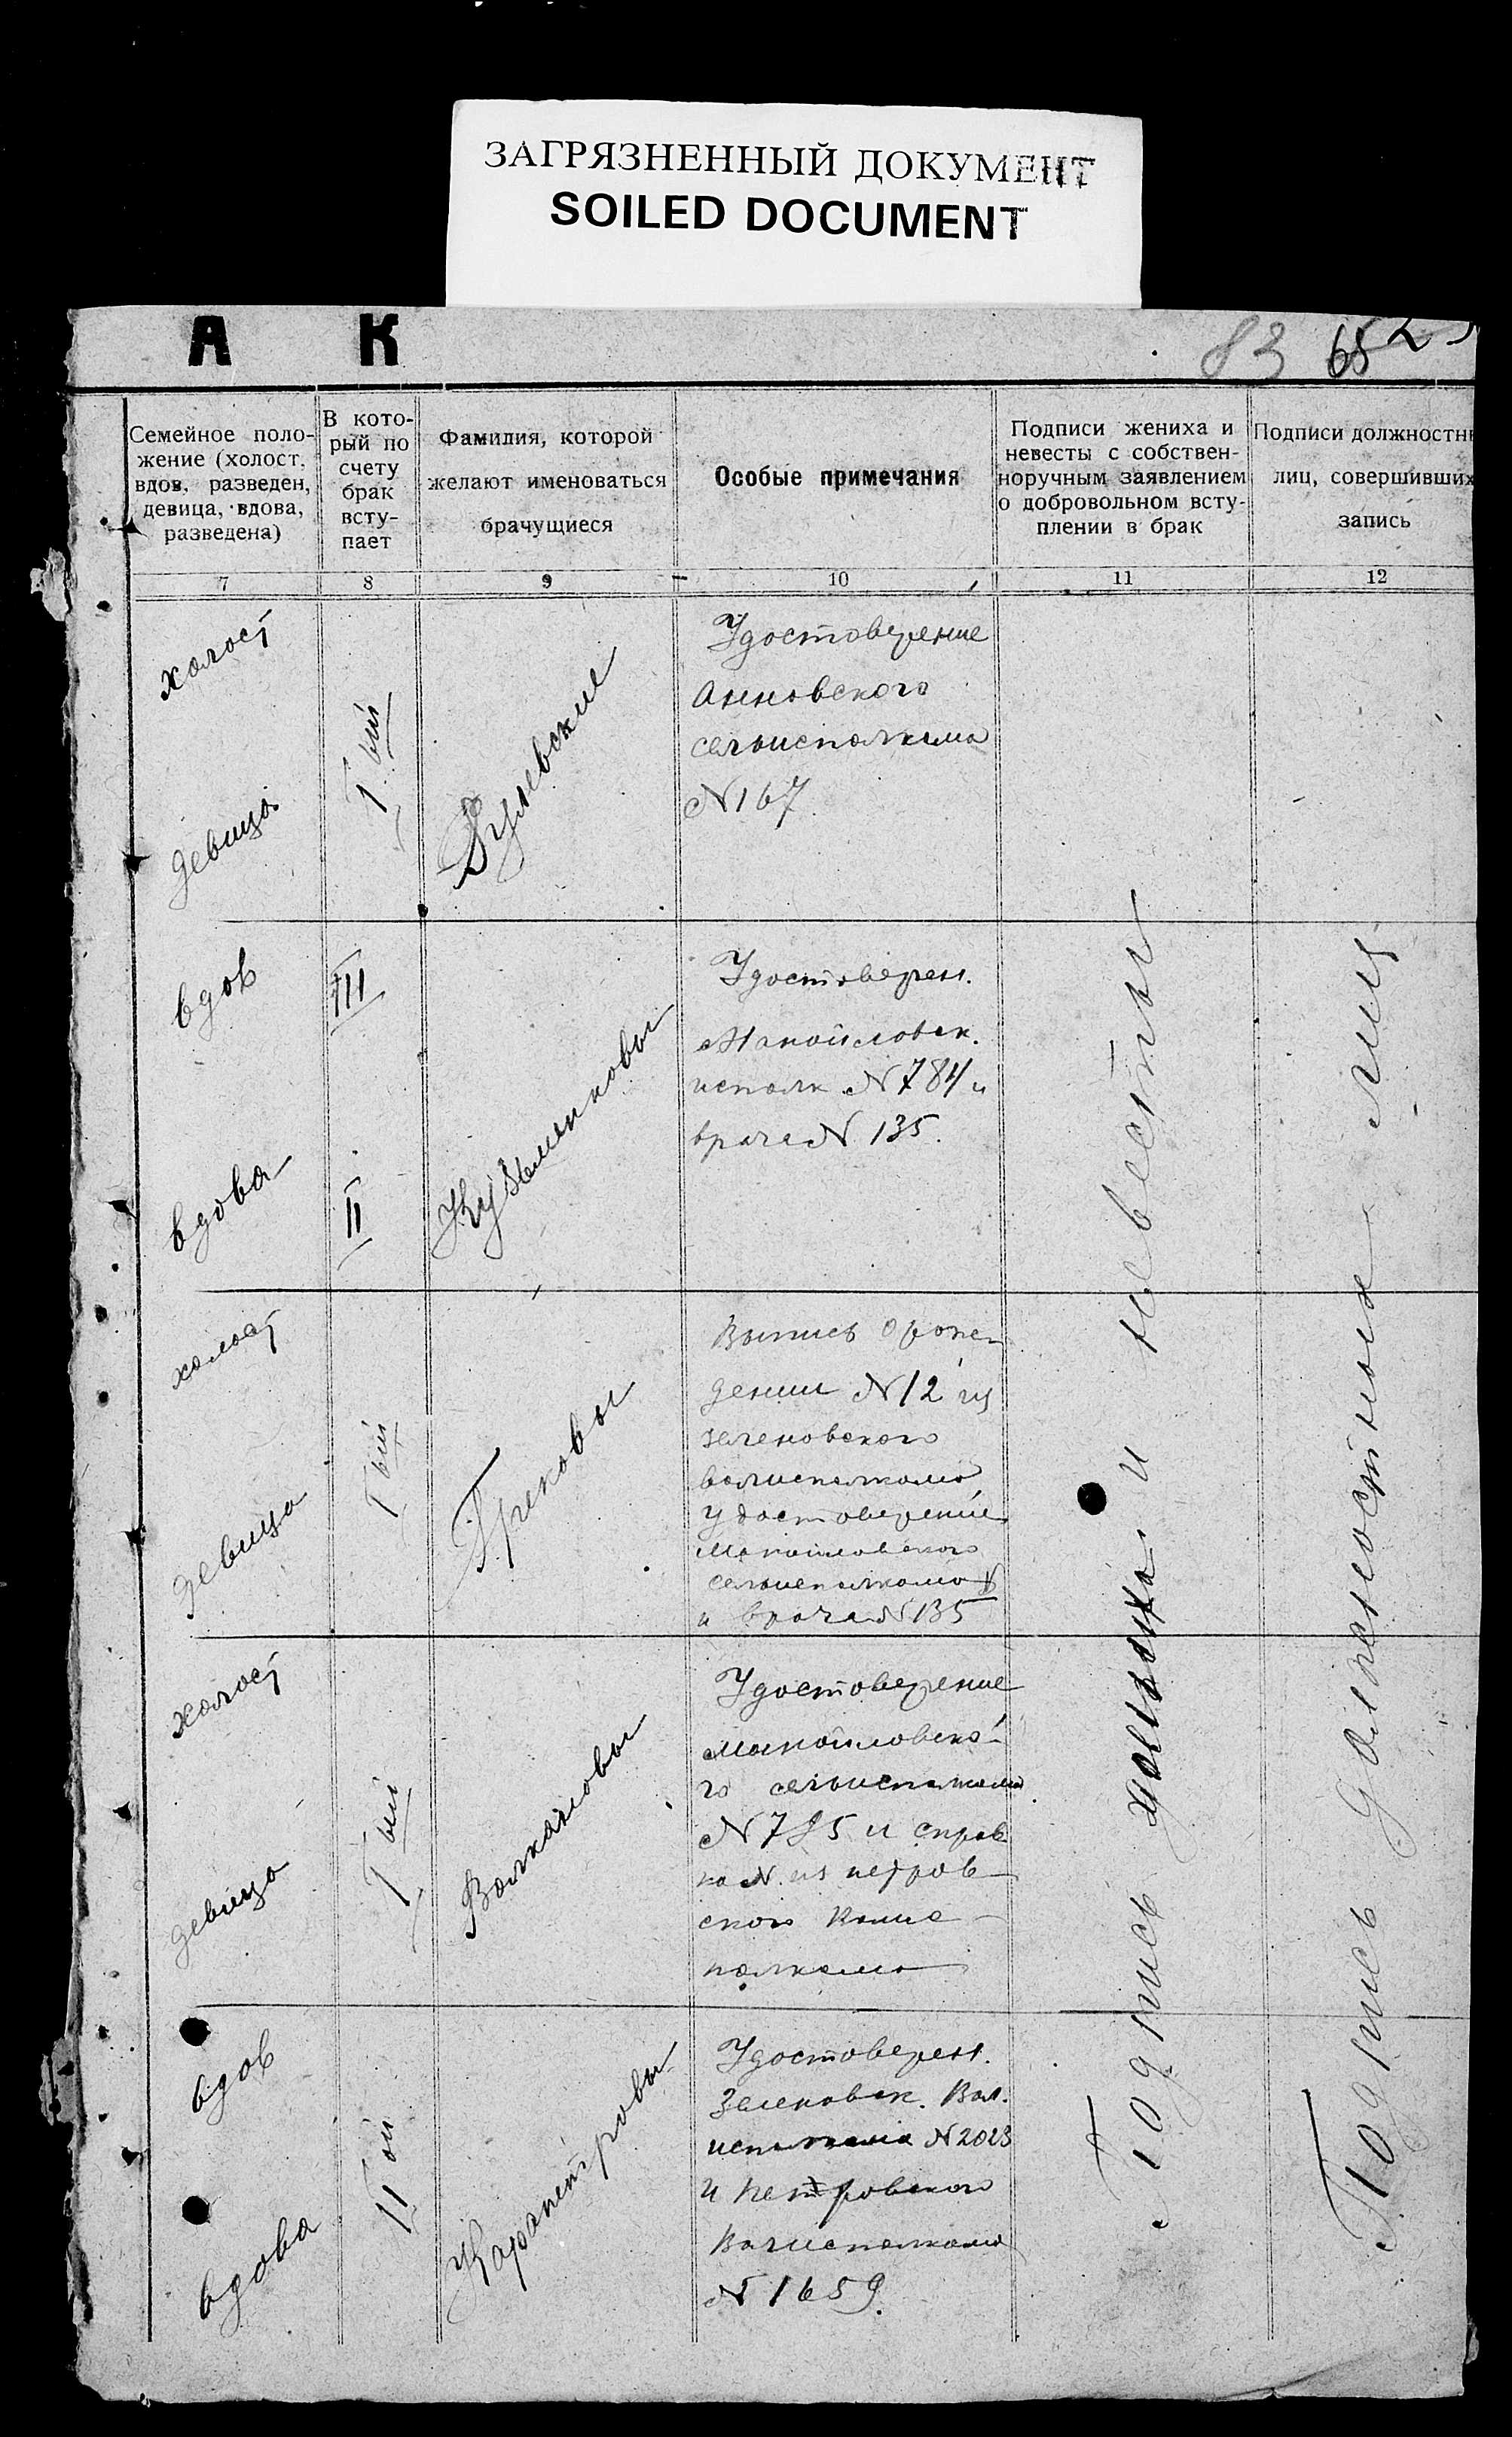 ЗАГРЯЗНЕННЫЙ ДОКУМЕНТ
SOILED DOCUMENT
А К
83 65
Семейное поло-
жение (холост,
вдов, разведен,
девица, вдова,
разведена)
В кото-
рый по
счету
брак
всту-
пает
Фамилия, которой
желают именоваться
брачущиеся
Особые примечания
Подписи жениха и
невесты с собствен-
норучным заявлением
о добровольном всту-
плении в брак
Подписи должностн
лиц, совершивших
запись
7 8 9 10 11 12
холост
девица
I ый
Удостоверение
Анновского
сельисполкома
N 167
вдов
вдова
III
II
Кузьменковы
Удостоверен.
Манойловск.
исполк N 784 и
врача N 135.
холост
девица
I ый
Грековы
Выпись о рож-
дении N 12 из
Зеленовского
волисполкома
Удостоверение
Манойловского
сельисполкома
и врача N 135
холост
девица
I ый
Волкановы
Удостоверение
Манойловско-
го сельисполкома
N 785 и справ
ка N из петров
ского
полкома
вдов
вдова
II ой
Карапетровы
Удостоверен.
Зеленовск. Вол.
исполкома N 2023
и Петровского
Волисполкома
N 1659.
Подпись жениха и невесты
Подпись должностных лиц